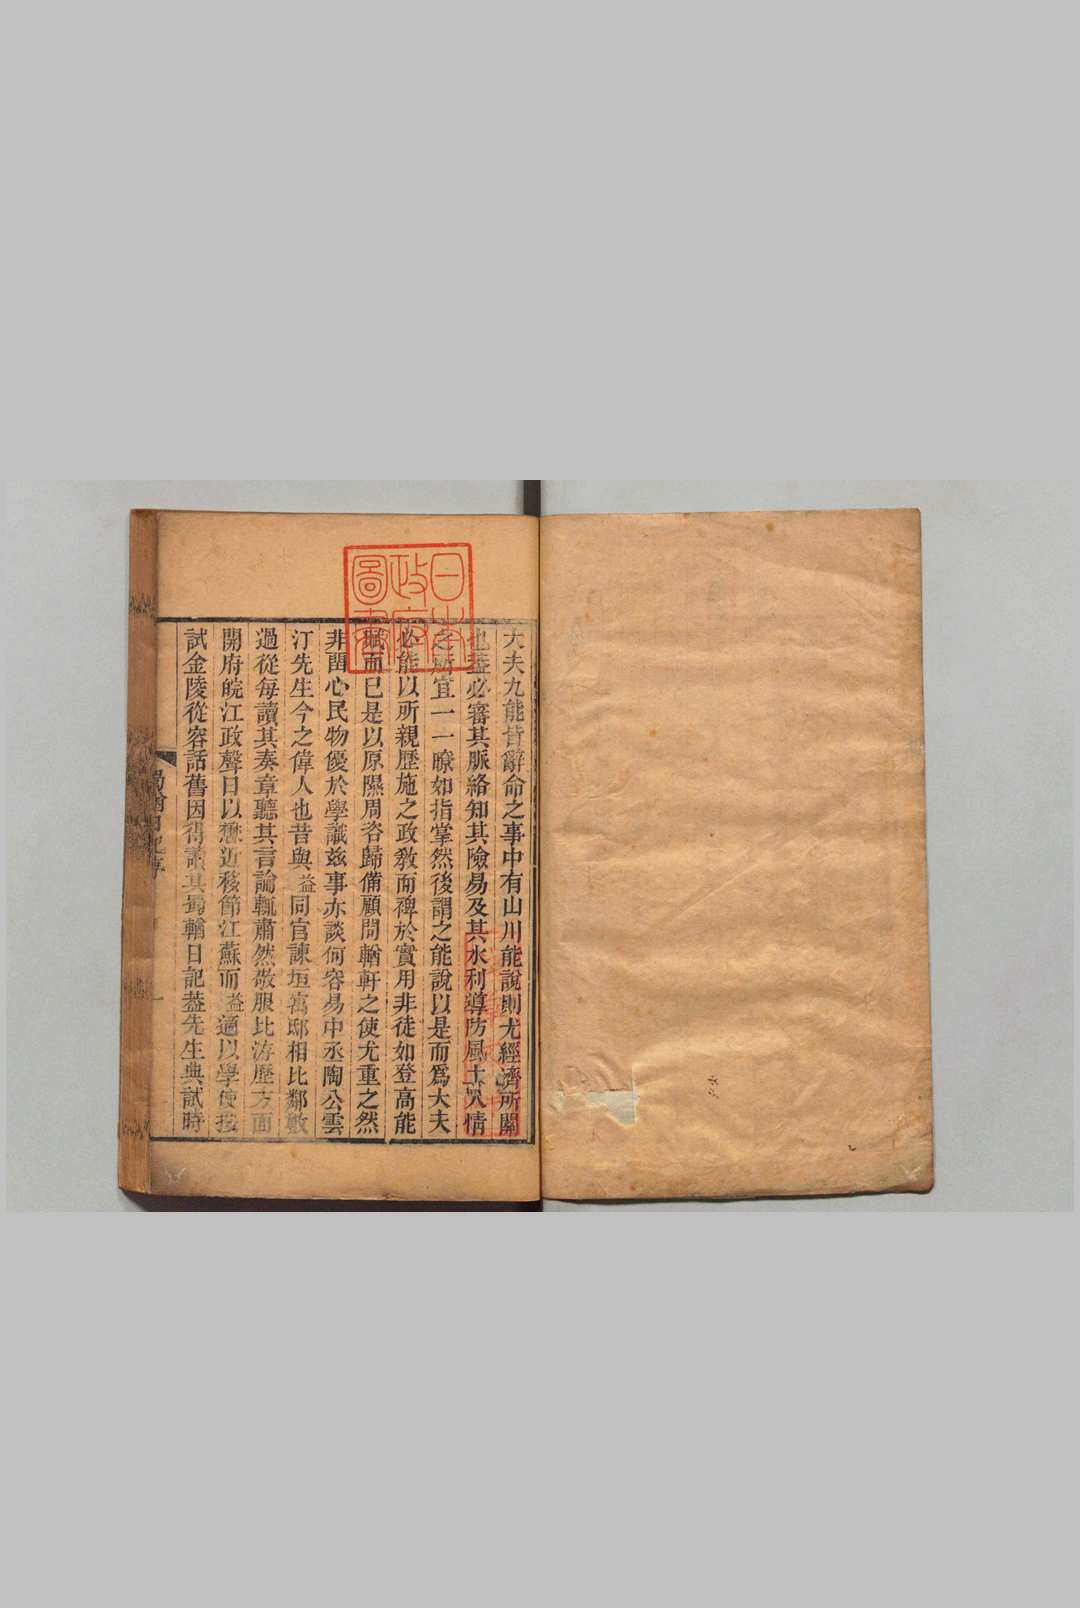 大夫九能皆辭命之事中有山川能說則尤經濟所關
也蓋必審其脈絡知其險易及其水利導防風土人情
之所宜一一瞭如指掌然後謂之能說以是而爲大夫
必能以所親歷施之政教而裨於實用非徒如登高能
賦而已是以原隰周咨歸備顧問輶軒之使尤重之然
非畱心民物優於學識茲事亦談何容易中丞陶公雲
汀先生今之偉人也昔與益同官諫垣寓邸相比鄰數
過從每讀其奏章聽其言論輒肅然敬服比游歷方面
開府皖江政聲日以懋近移節江蘇而益適以學使按
試金陵從容話舊因得讀其蜀輶日記葢先生典試時
蜀輶日記序
日本政府圖書